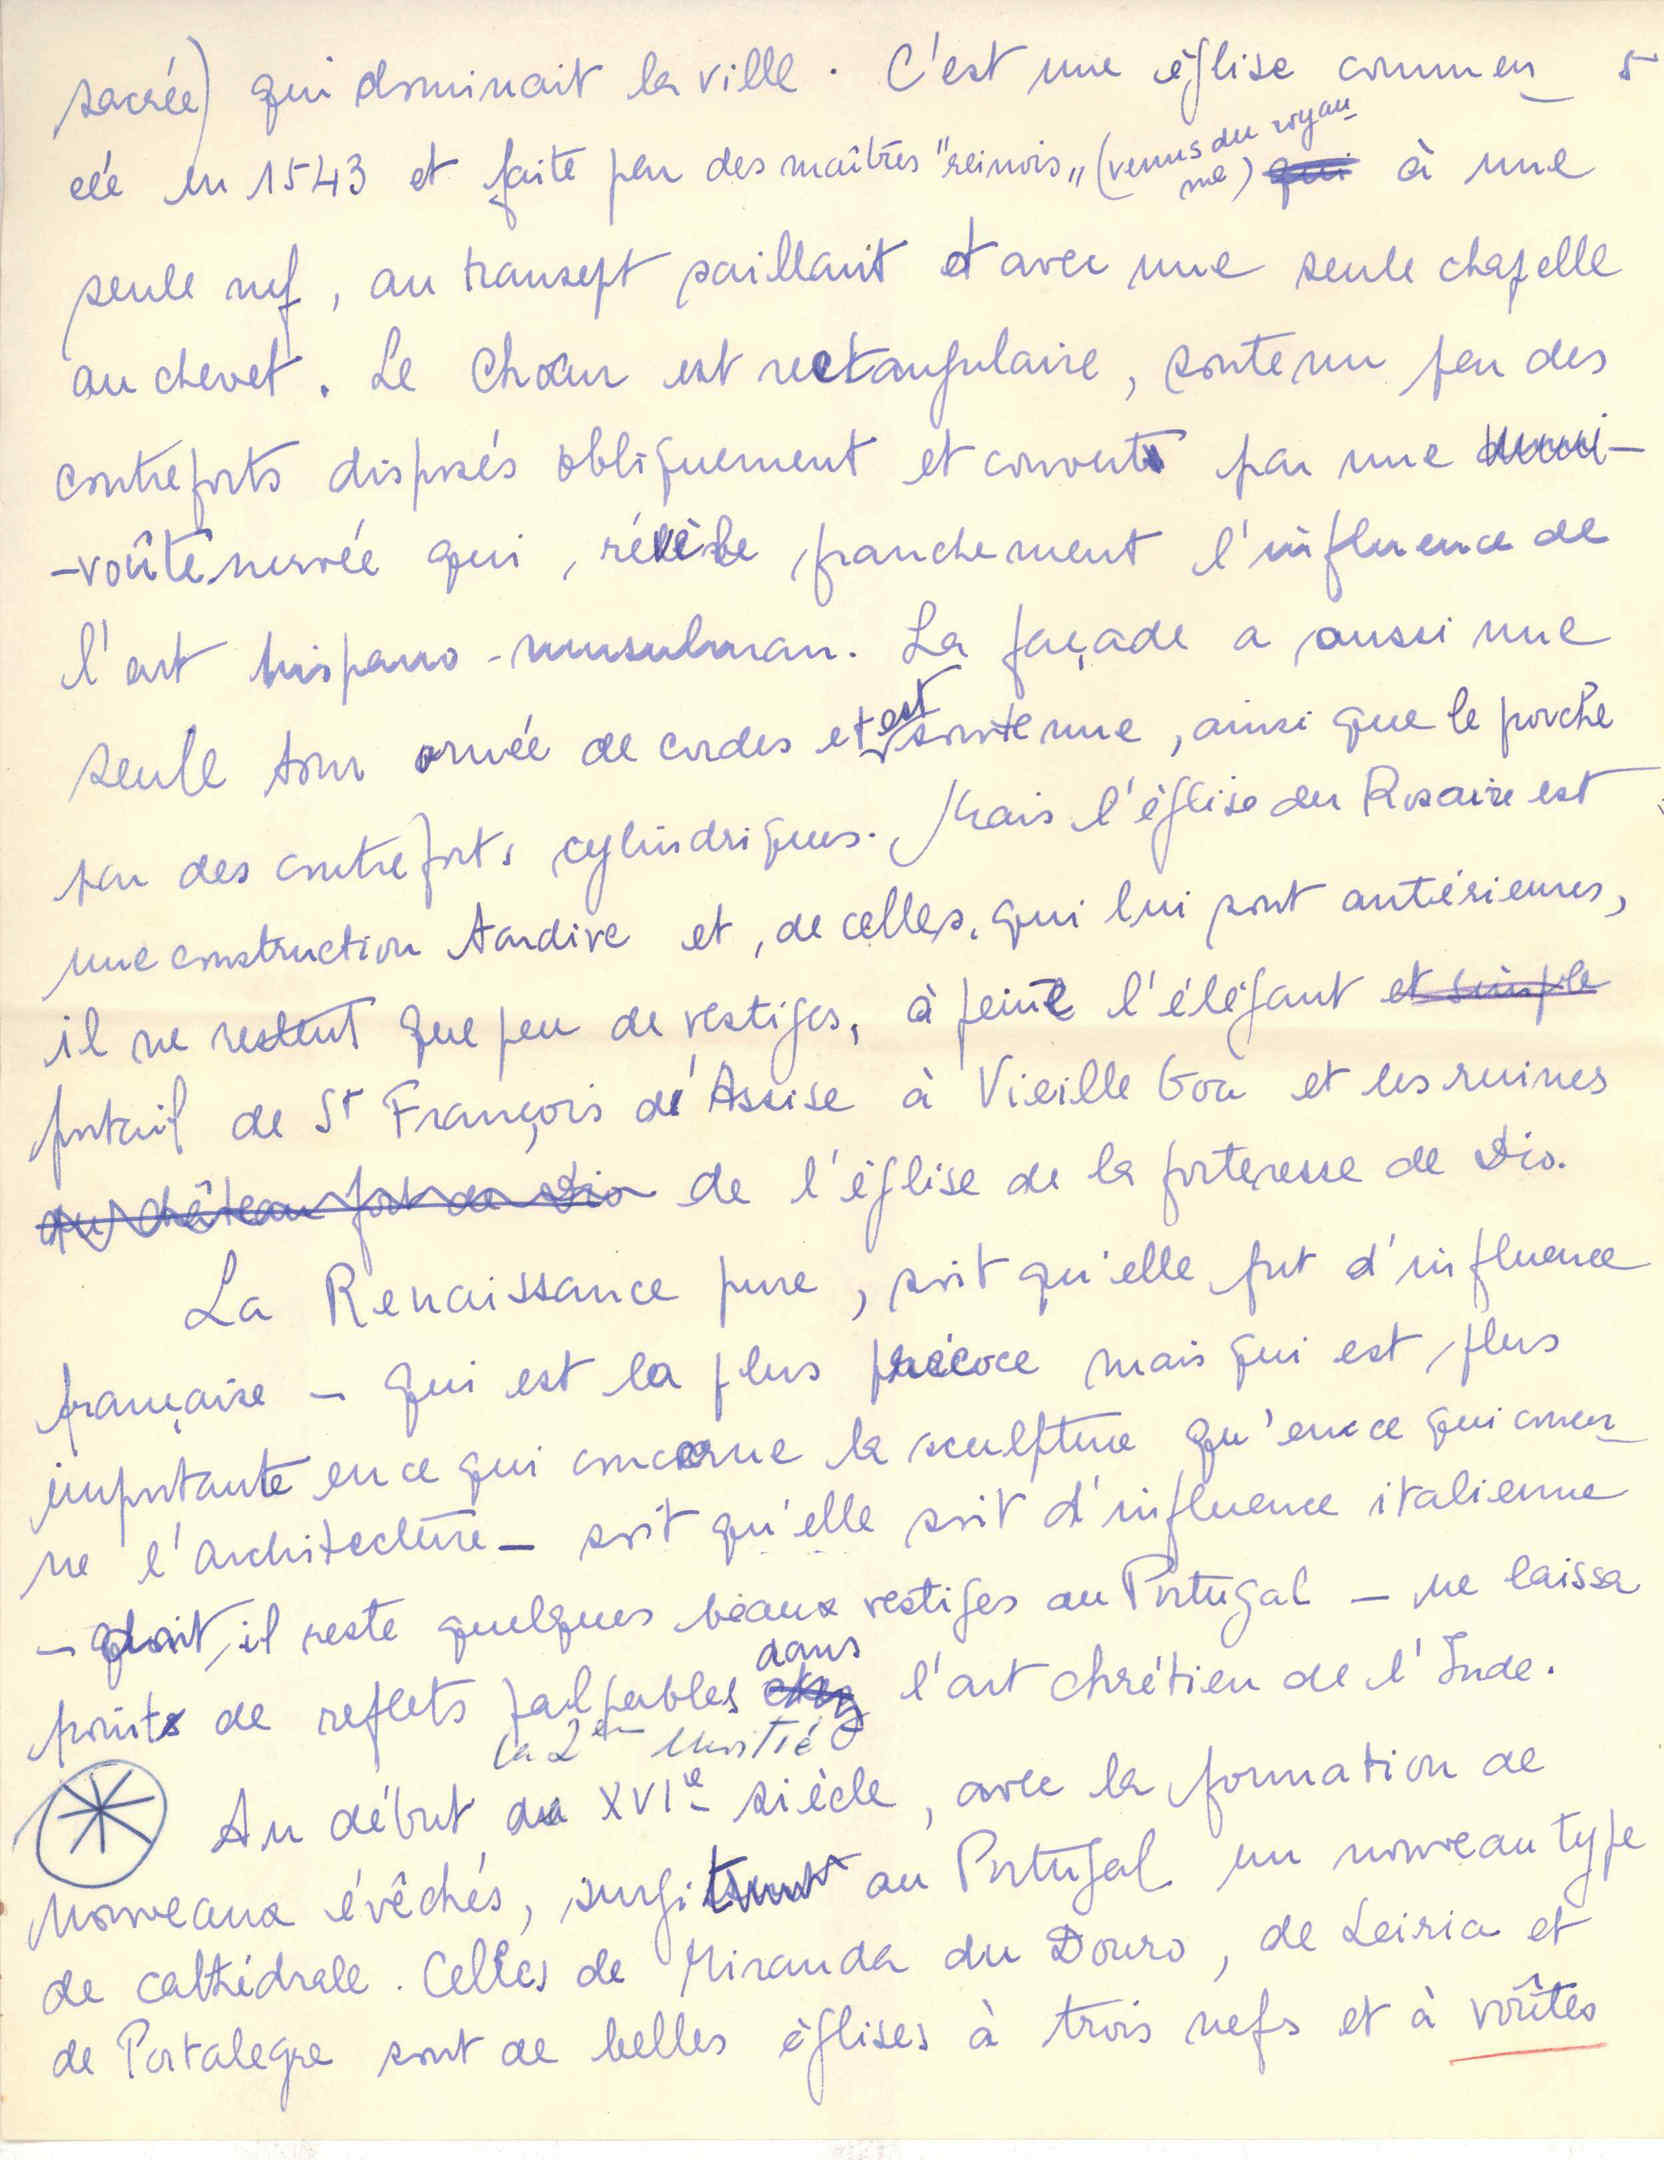 sacrée) qui dominait la ville. C'est une église commen 5
cée en 1543 et faite par des maîtres "reinois" (venus du royau
me) qui à une
seule nef, au transept saillant et avec une seule chapelle
au chevet. Le Chœur est rectangulaire, soutenu par des
contreforts disposés obliquement et couvert par une
-voûte nervée qui, révèle franchement l'influence de
l'art hispano-musulman. La façade a aussi une
seule tour ornée de cordes et est soutenue, ainsi que le porche
par des contreforts cylindriques. Mais l'église du Rosaire est
une construction tardive et, de celles, qui lui sont antérieures,
il ne restent que peu de vestiges, à peine l'élégant et simple
portail de St François d'Assise à Vieille Goa et les ruines
du château fort de Dio de l'église de la forteresse de Dio.
La Renaissance pure, soit qu'elle fut d'influence
française - qui est la plus précoce mais qui est plus
importante en ce qui concerne la sculpture qu'en ce qui concer
ne l'architecture - soit qu'elle soit d'influence italienne
- dont, il reste quelques beaux vestiges au Portugal - ne laissa
point de reflets palpables dans chez l'art chrétien de l'Inde.
la 2em Moitié
Au début du XVIe siècle, avec la formation de
nouveaux évêchés, surgit au Portugal un nouveau type
de cathédrale. Celles de Miranda du Douro, de Leiria et
de Portalegre sont de belles églises à trois nefs et à voûtes